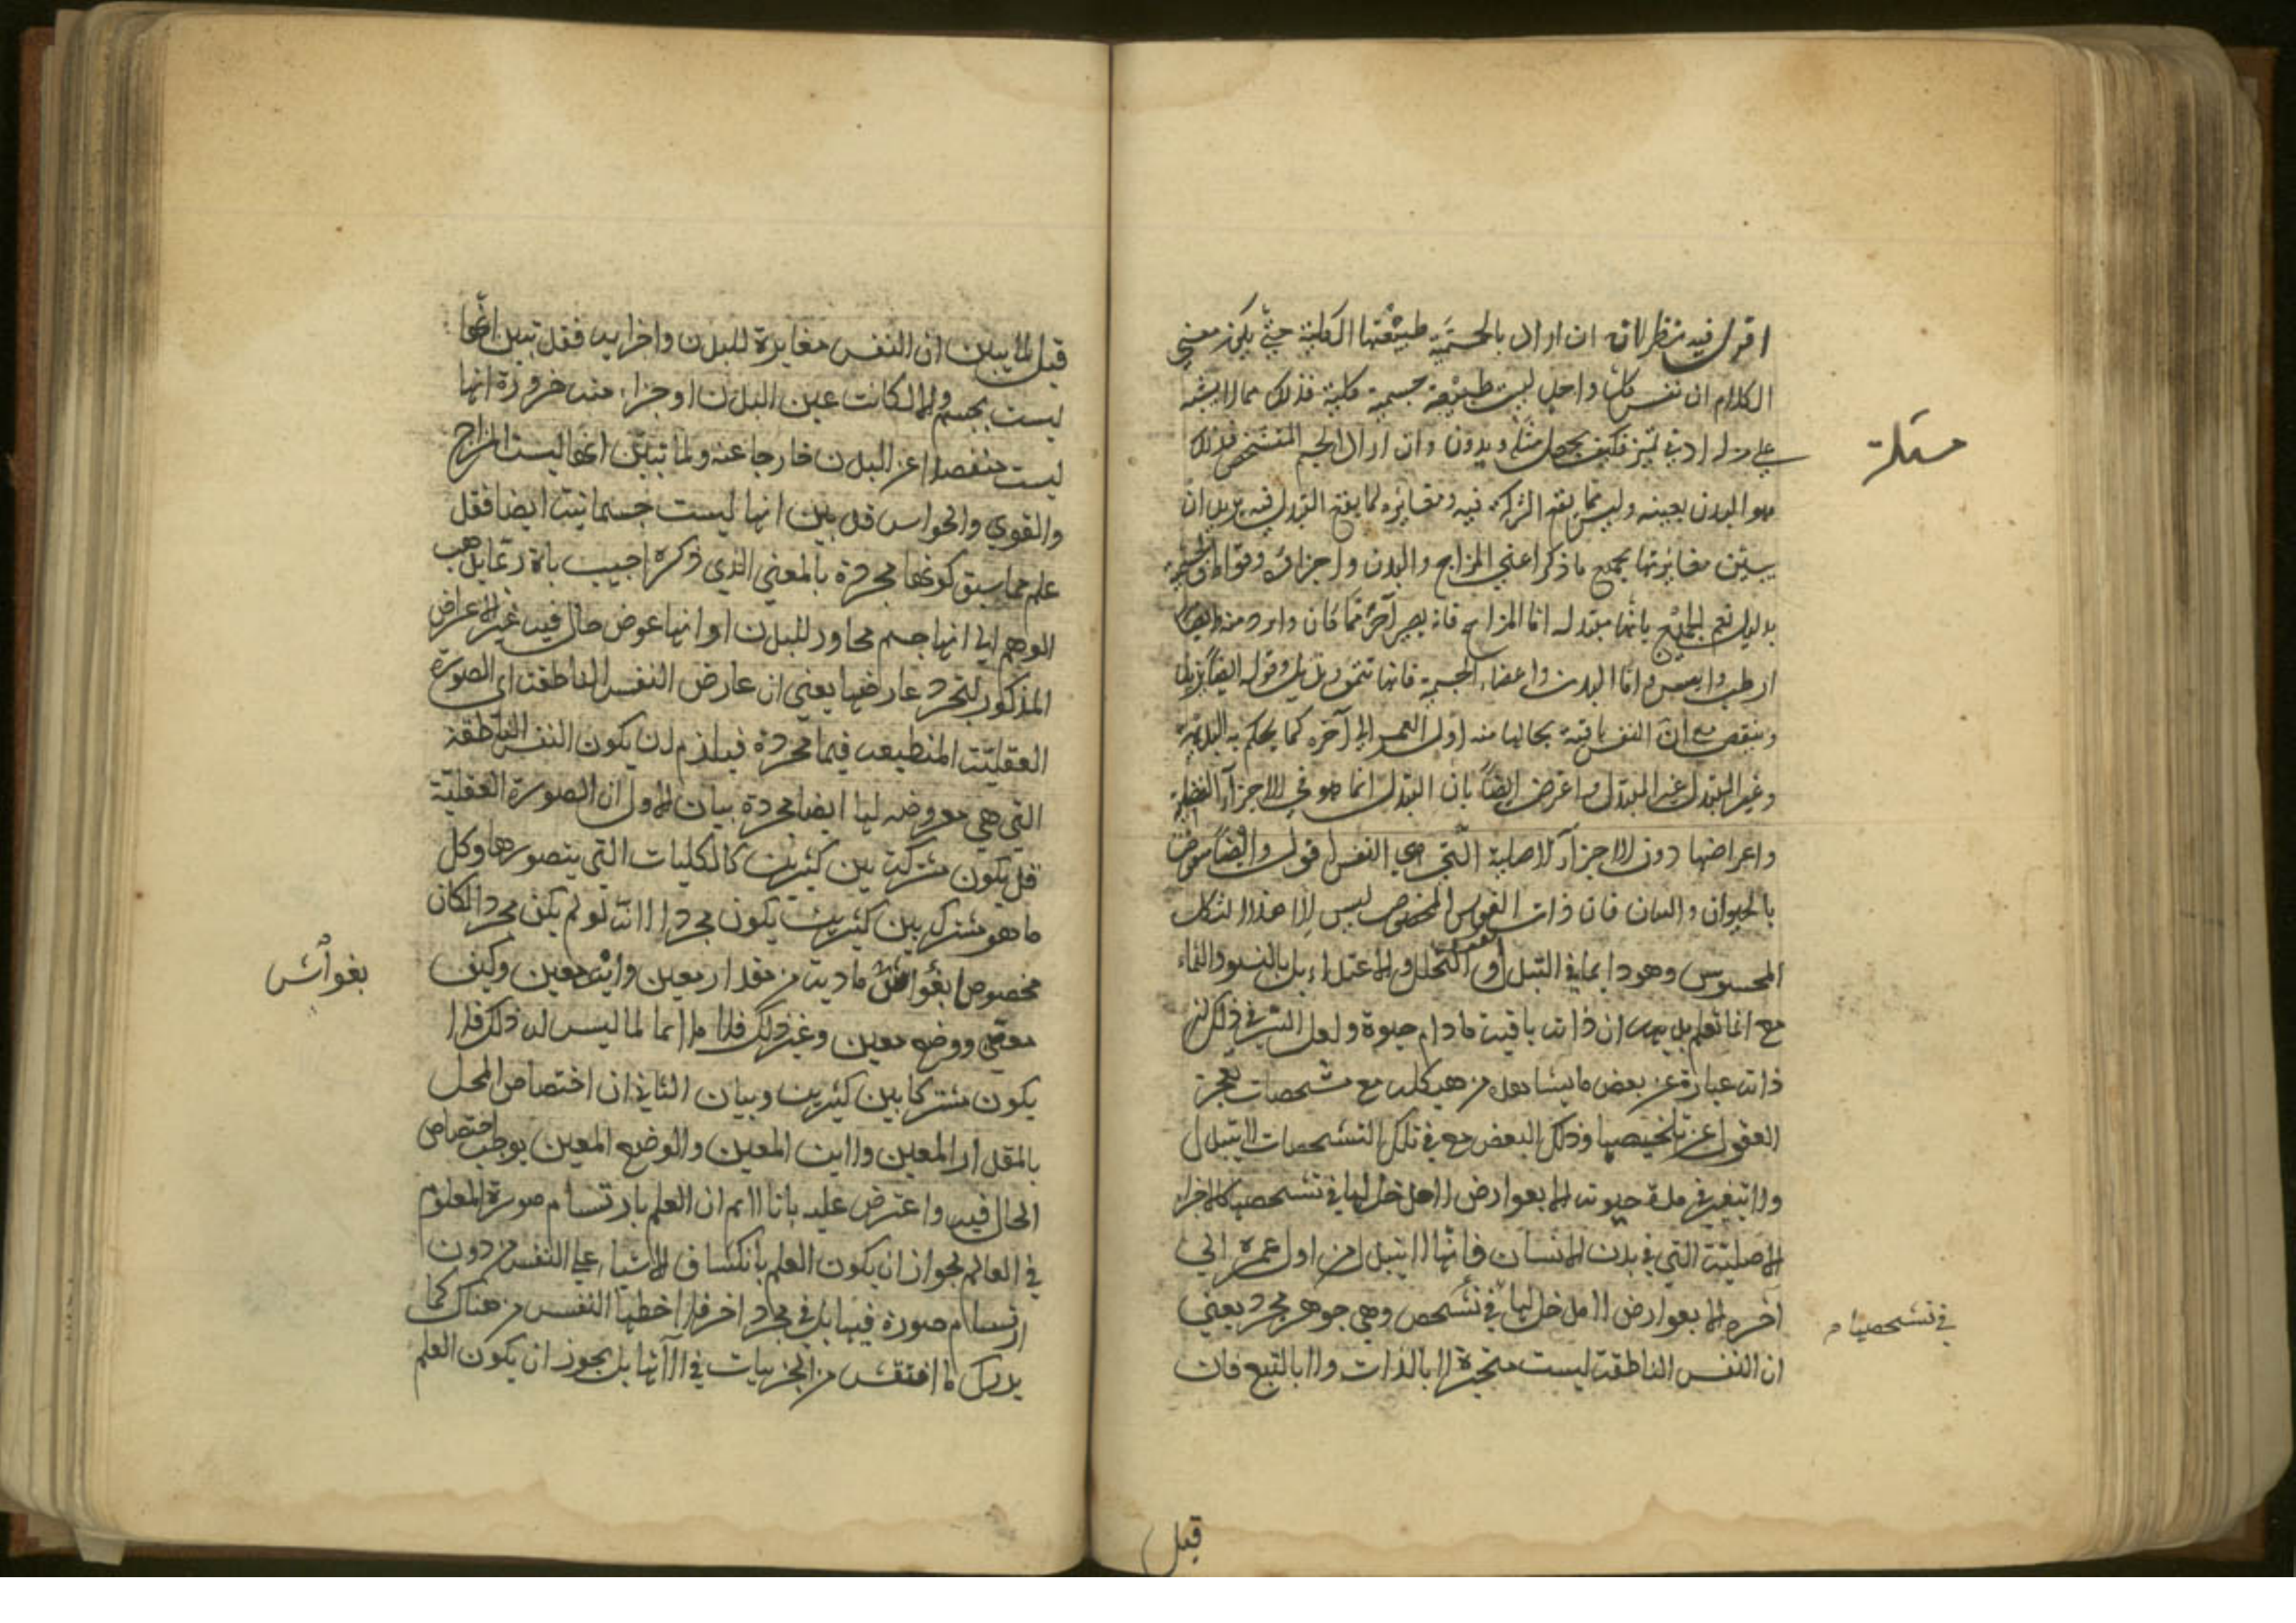 اقول فيه نظر لانه ان اراد بالجسمية طبيعتها الكلية حيث يكون معنى
الكلام ان نفس كل واحد ليست طبيعة جسمية كلية فذلك مما لا يشتبه
على تميز فكيف يجعل مسئلة ويدون وان اراد الجسم المتشخص فذلك
مسئلة
هو البدن بعينه وليس مما يقع الشركة فيه ومغايره لما يقع التبدل فيه يريد ان
يبين مغايرتها بجميع ما ذكر اعني المزاج والبدن واجزائه وقواه
بدليل يعم الجميع بانها متبدلة اما المزاج فانه يصير آخر مما كان وابرد منه وايضا
ارطب وايبس واما البدن واعضاء الجسمية فانها تنمو وقوله ايضا
وينقص مع ان النفس باقية بحالها منه اول العمر الى آخره كما يحكم به البديهة
وغير المتبدل غير المتبدل واعترض ايضا بان التبدل انما هو في الاجزاء الفضلية
واعراضها دون الاجزاء الاصلية التي هي النفس اقول وايضا منقوض
بالحيوان والنبات فان ذات الفرس المخصوص ليس الا هذا الشكل
المحسوس وهو دايما في التبدل التحلل والاغتذاء بل بالنمو والنماء
مع انا نعلم بديهة ان ذاته باقية ما دام حيوة ولعل السر في ذلك ان
ذاته عبارة عن بعض ما يشاهده من هيكله مع تشخصات تعجز
العقول عن تلخيصها وذلك البعض مع في تلك التشخصات لا يتبدل
ولا يتغير في مدة حيوته الا بعوارض لا مدخل لها في تشخصها كالاجزاء
الاصلية التي في بدن الانسان فانها لا يتبدل من اول عمره الى
اخره الا بعوارض لا مدخل لها في تشخص وهي جوهر مجرد يعني
في تشخصها م
ان النفس الناطقة ليست متحيزة لا بالذات ولا بالتبع فان
قيل
قيل لما يبين ان النفس مغايرة للبدن واجزايه فقد تبين انها
ليست بجسم والا لكانت عين البدن او جزاء منه ضرورة انها
ليست منفصلا عن البدن خارجا عنه ولما تبين انها ليست المزاج
والقوي والحواس قد بين انها ليست جسمانية ايضا فقد
علم مما سبق كونها مجردة بالمعني الذي ذكره اجيب بانه ربما يذهب
الوهم الي انها جسم مجاور للبدن او انها عرض حال فيه غير الاعراض
المذكور لتجرد عارضها يعني ان عارض النفس الناطقة اي الصورة
العقلية المنطبعة فيها مجردة فيلزم ان يكون النفس الناطقة
التي هي معروضة لها ايضا مجردة بيان الاول ان الصورة العقلية
قد يكون مشتركة بين كثيرين كالكليات التي يتصورها وكل
ما هو مشترك بين كثيرين يكون مجردا لانه لو لم يكن مجردا لكان
مخصوصا بغواش مادية من مقدار معين واين معين وكيف
بغواش
معين ووضع معين وغير ذلك فلا ملائما لما ليس له ذلك فلا
يكون مشتركا بين كثيرين وبيان الثاني ان اختصاص المحل
بالمقدار المعين والاين المعين والوضع المعين يوجب اختصاص
الحال فيه واعترض عليه بانا لا نم ان العلم بارتسام صورة المعلوم
في العالم لجواز ان يكون العلم بانكشاف الاشياء علي النفس من دون
ارتسام صورة فيها بل في مجرد اخر فلاحظها النفس من هناك كما
يدرك ما انتقش من الجزييات في الآتها بل يجوز ان يكون العلم